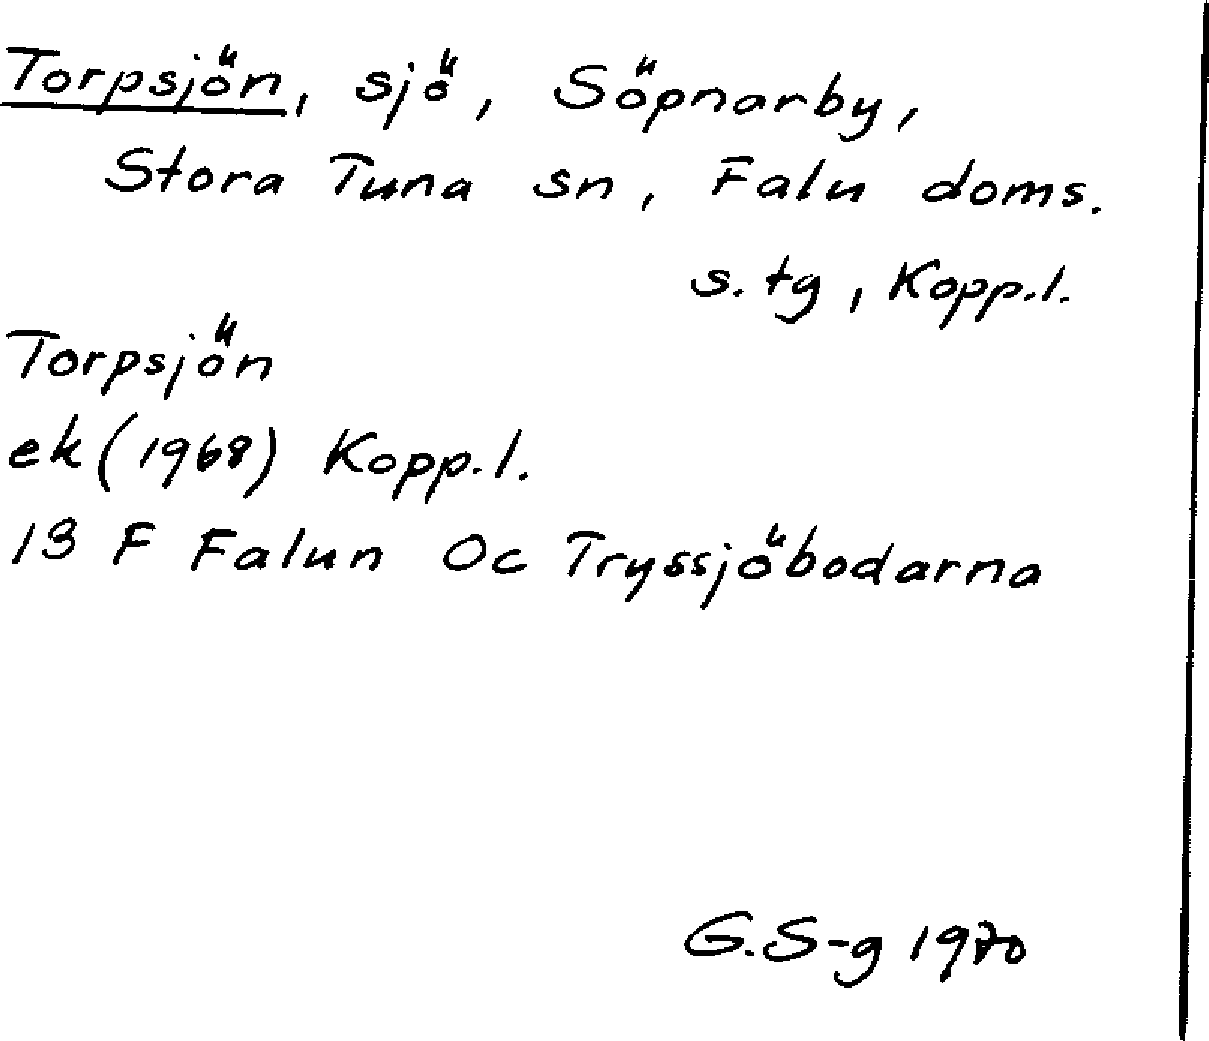 Torpsjön, sjö, Söpnarby,
Stora Tuna sn, Falu doms.
s. tg, Kopp.l.
Torpsjön
ek (1968) Kopp.l.
13 F Falun 0c Tryssjöbodarna
G.S-g 1970